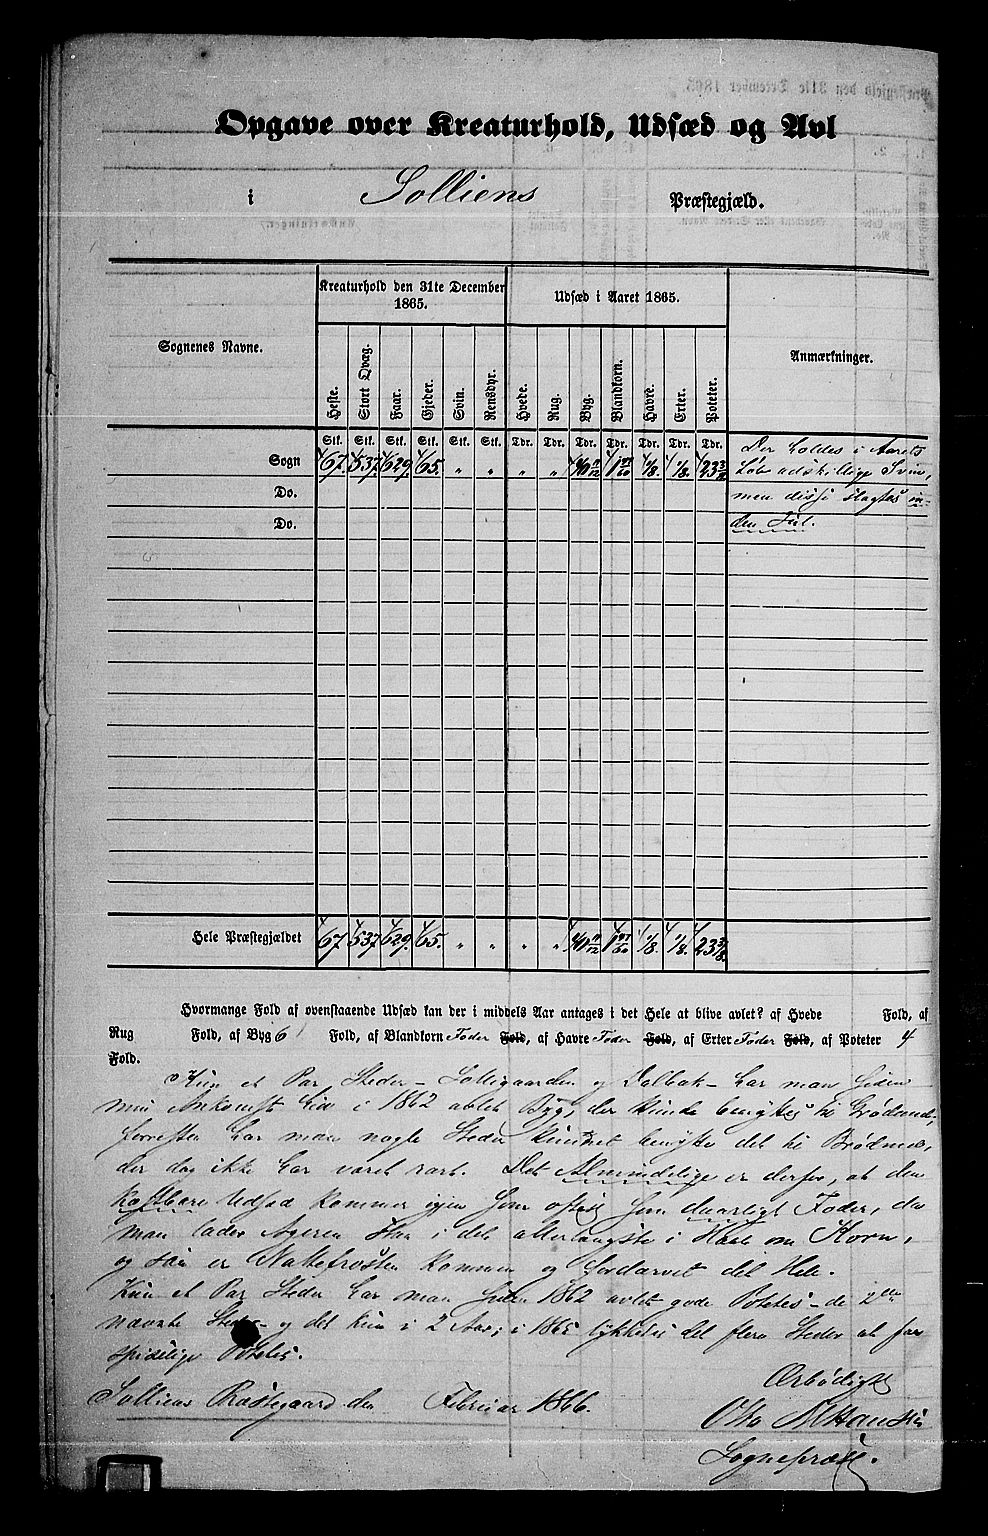 Opgave over Kreaturhold, Udsæd og Avl
i Solliens Præstegjæld.
Sognenes Navne.
Kreaturhold den 31te December 1865.
Udsæd i Aaret 1865.
Anmærkninger.
Heste. Stort Qvæg. Faar. Gjeder. Svin. Rensdyr. Hvede. Rug. Byg. Blandkorn. Havre. Erter. Poteter.
Stk. Stk. Stk. Stk. Stk. Stk. Tdr. Tdr. Tdr. Tdr. Tdr. Tdr. Tdr.
Sogn 67. 537. 629. 65. " " " " 40 11/12 1/8. 1/8. 23 3/8
Do.
Do.
Der holdes i Aarets
Løb adskillige Svin,
men disse slagtes in-
den Jul.
Hele Præstegjældet 67. 537. 629. 65. " " " " 40 11/12 1/8. 1/8. 23 3/8.
Hvormange Fold af ovenstaaende Udsæd kan der i middels Aar antages i det Hele at blive avlet? af Hvede Fold, af
Rug Fold, af Byg 6 Fold, af Blandkorn Foder Fold, af Havre Foder Fold, af Erter Foder Fold, af Poteter 4
Fold.
Kun et Par Steder – Solligaarden og Dalbak – har man siden
min Ankomst her i 1862 avlet Byg, der kunde benyttes til
forresten har man nogle Steder kunnet benytte det til
der dog ikke har været rart. Det Almindelige er derfor, at den
kostbare Udsæd kommer igjen som oftest som daarligt Foder, da
man lader Ageren staa i det allerlængste i Haab om Korn,
og saa er Nattefrosten kommen og fordærvet det Hele.
Kun et Par Steder har man siden 1862 avlet gode Poteter – de 2de
nævnte Steder – og det kun i 2 Aar; i 1865 lykkedes det flere Steder at faa
spiselige Poteter.
Ærbødigst
Solliens Præstegaard den Februar 1866.
Otto Hansen
Sognepræst.